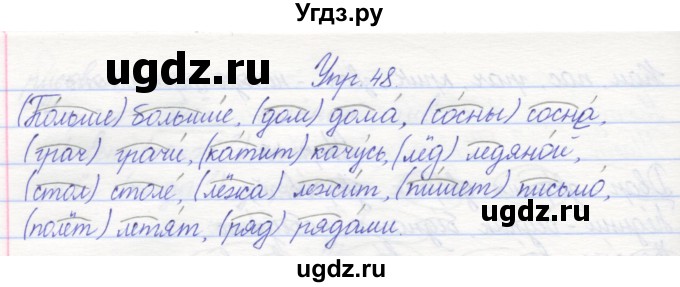 Угдз.ру
Упр. 48
(Бо́льше) больши́е, (дом) дома́, (со́сны) сосна́,
(грач) грачи́, (ка́тит) качу́сь, (лёд) ледяно́й,
(стол) столе́, (лёжа) лежи́т, (пи́шет) письмо́,
(полёт) летя́т, (ряд) ряда́ми.
ugdz.ru
ugdz.ru
ugdz.ru
ugdz.ru
ugdz.ru